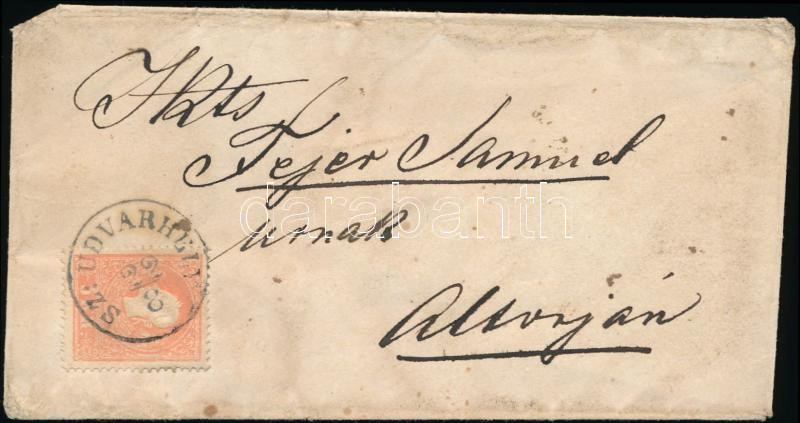 Tkts
Fejér Samuel
urnak
Altorján
SZ: UDVARHELY
darabanth